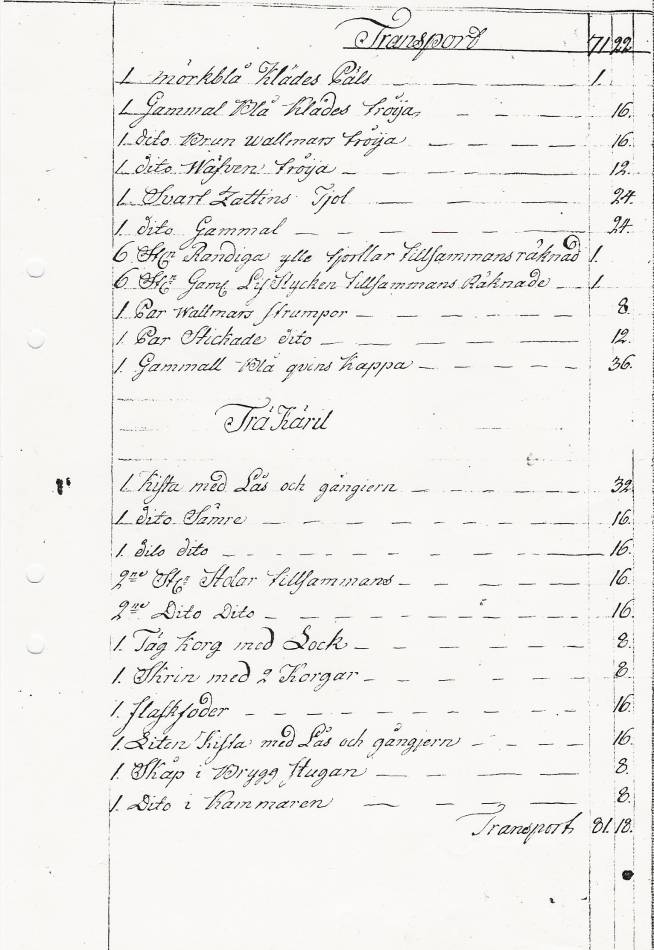 Transport 71 22
1 mörkblå Klädes Päls 1.
1 Gammal Blå Klädes tröija 16.
1 dito Brun wallmars tröija 16.
1. dito Wäfven tröija 12.
1 Svart Zattins Tjol 24.
1. dito Gammal 24.
6 Stcn Randiga ylle tjortlar tillsammans räknad 1.
6 Stcn Gaml Lifstycken tillsammans Räknade 1.
1 Par Wallmars strumpor 8
1 Par Stickade dito 12.
1 Gammall Blå qvins Kappa 36.
Trä Käril
1. Kista med Lås och gångiern 32
1 dito Sämre 16.
1. dito dito 16.
2ne Stcn Stolar tillsammans 16.
2ne Dito Dito 16.
1. Tåg Korg med Lock 8.
1. Skrin med 2 Korgar 8.
1. flaskfoder 16
1. Liten Kista med Lås och gångjern 16.
1 Skåp i Brygg stugan 8.
1. Dito i Kammaren 8.
Transport 81. 18.